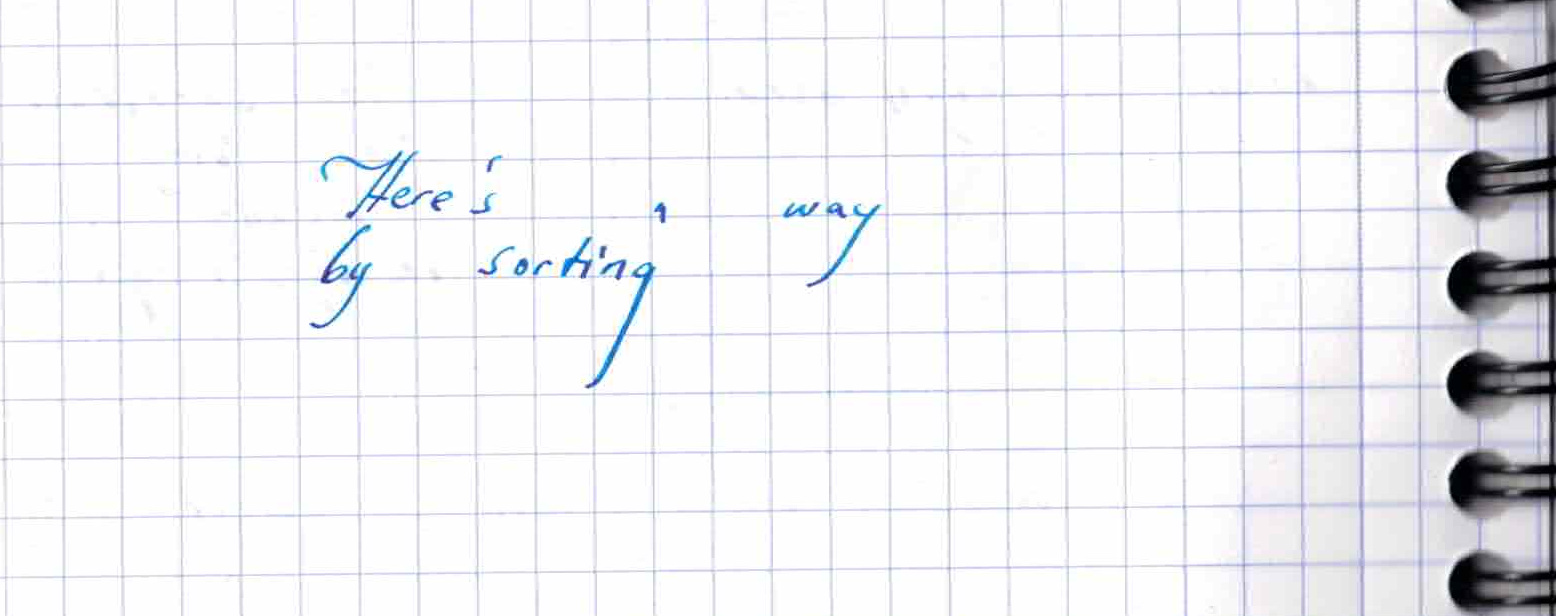 Here's a way
by sorting